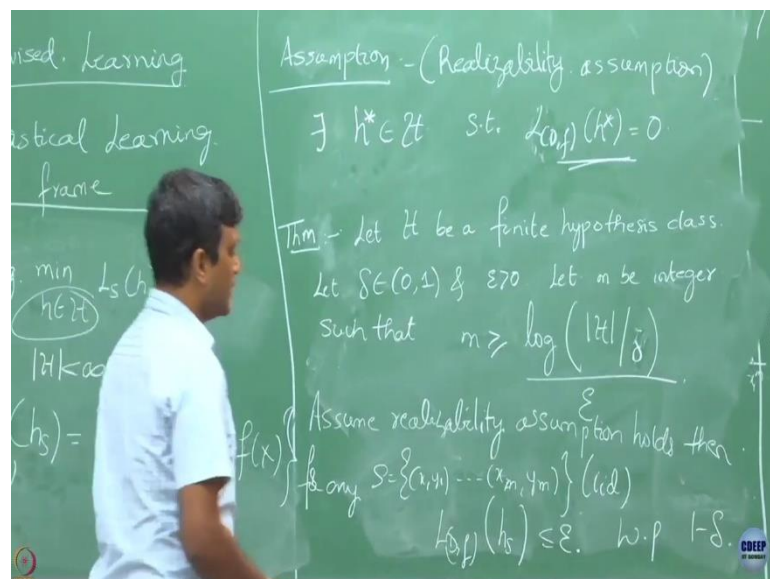 vised. Learning
astical Learning.
frame
min
h∈H Ls(h
|H|<∞
(hs) =
f(x)
Assumption - (Realizability assumption)
∃ h* ∈ H s.t. L(D,f)(h*) = 0
Thm - Let H be a finite hypothesis class.
Let δ∈(0,1) & ε>0 Let m be integer
such that m ≥ log(|H|/δ)
ε
Assume realizability assumption holds then
for any S={(x,y1) ---- (xm, ym)} (iid)
L(D,f)(hs) ≤ ε. w.p 1-δ.
CDEEP
IIT BOMBAY